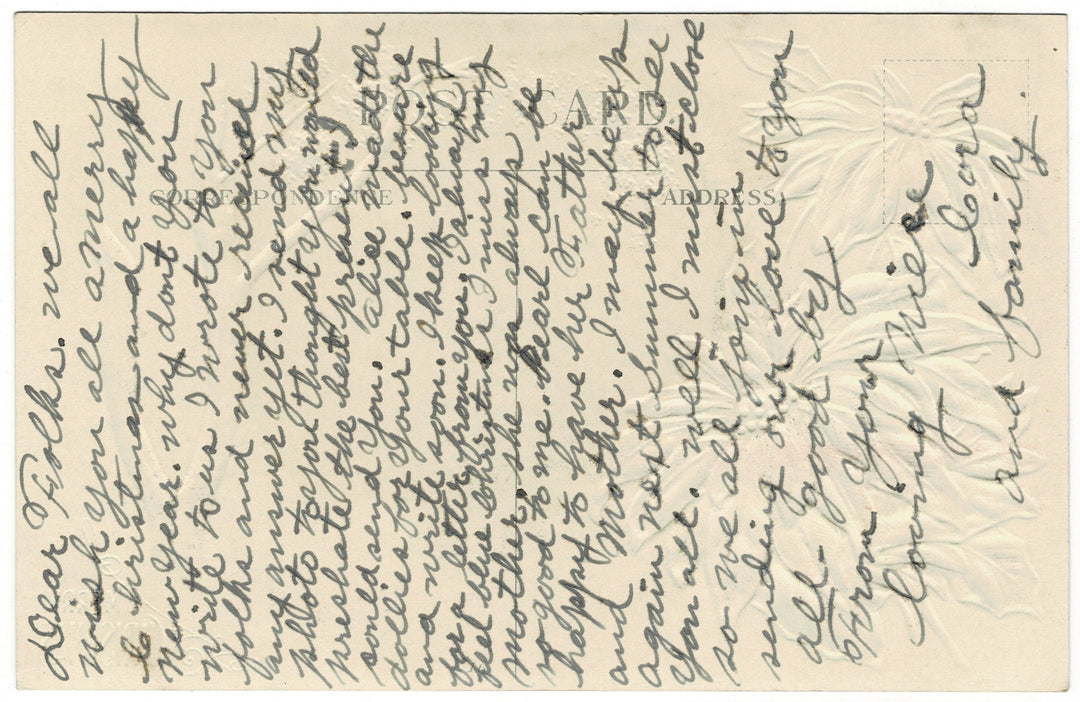 Dear Folks. we all
wish you all a merry
Christmas and a happy
new year. why dont you
write to us I wrote to you
folks and never receive
any answer yet. I send my
photo to you thought you mouted
preshate the best presint I
sould send you. Alice made the
dollies for your table. beware
and write soon. I keep looking
for a letter from you. I always
feel blue Christmas I miss my
mother. she was always
so good to me. Pearl can be
happy to have her Father
and Mother. I may be up
again next summer to see
you all. well I must close
so we all join in
sending our love to you
all- good by
From your
loving Niece
Cora
and family.
POST CARD
CORRESPONDENCE
ADDRESS